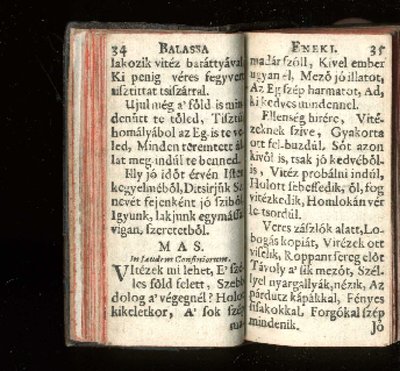 34 BALASSA
lakozik vitéz baráttyával
Ki penig véres fegyvert
tisztittat tsiszárral.
Ujul még a' föld is min-
denütt te töled, Tisztúl
homályábol az Eg-is te ve-
led, Minden teremtett ál-
lat meg-indúl te benned.
Elly jó időt érvén Isten
kegyelméből, Ditsirjük Sz.
nevét fejenként jó sziből,
Igyunk, lakjunk egymással
vigan, szeretetből.
MAS.
In laudem Confiniorum.
VItézek mi lehet, E' szé-
les föld felett, Szebb
dolog a' végegnél? Holott
kikeletkor, A' sok szép
ma-
ENEKI. 35
madár szóll, Kivel ember
ugyan él, Mező jó illatot,
Az Eg szép harmatot, Ad,
ki kedves mindennel.
Ellenség hirére, Vité-
zeknek szive, Gyakorta
ott fel-buzdúl. Sót azon
kivől is, tsak jó kedvéből-
is, Vitéz probálni indúl,
Holott sebessedik, öl, fog,
vitézkedik, Homlokán vér
le-tsordúl.
Veres zászlók alatt, Lo-
bogás kopiát, Vitézek ott
viselik, Roppant sereg előt
Távoly a' sik mezőt, Szél-
lyel nyargallyák, nézik, Az
párdutz kápákkal, Fényes
sisakokkal, Forgókal szép
mindenik. Jó